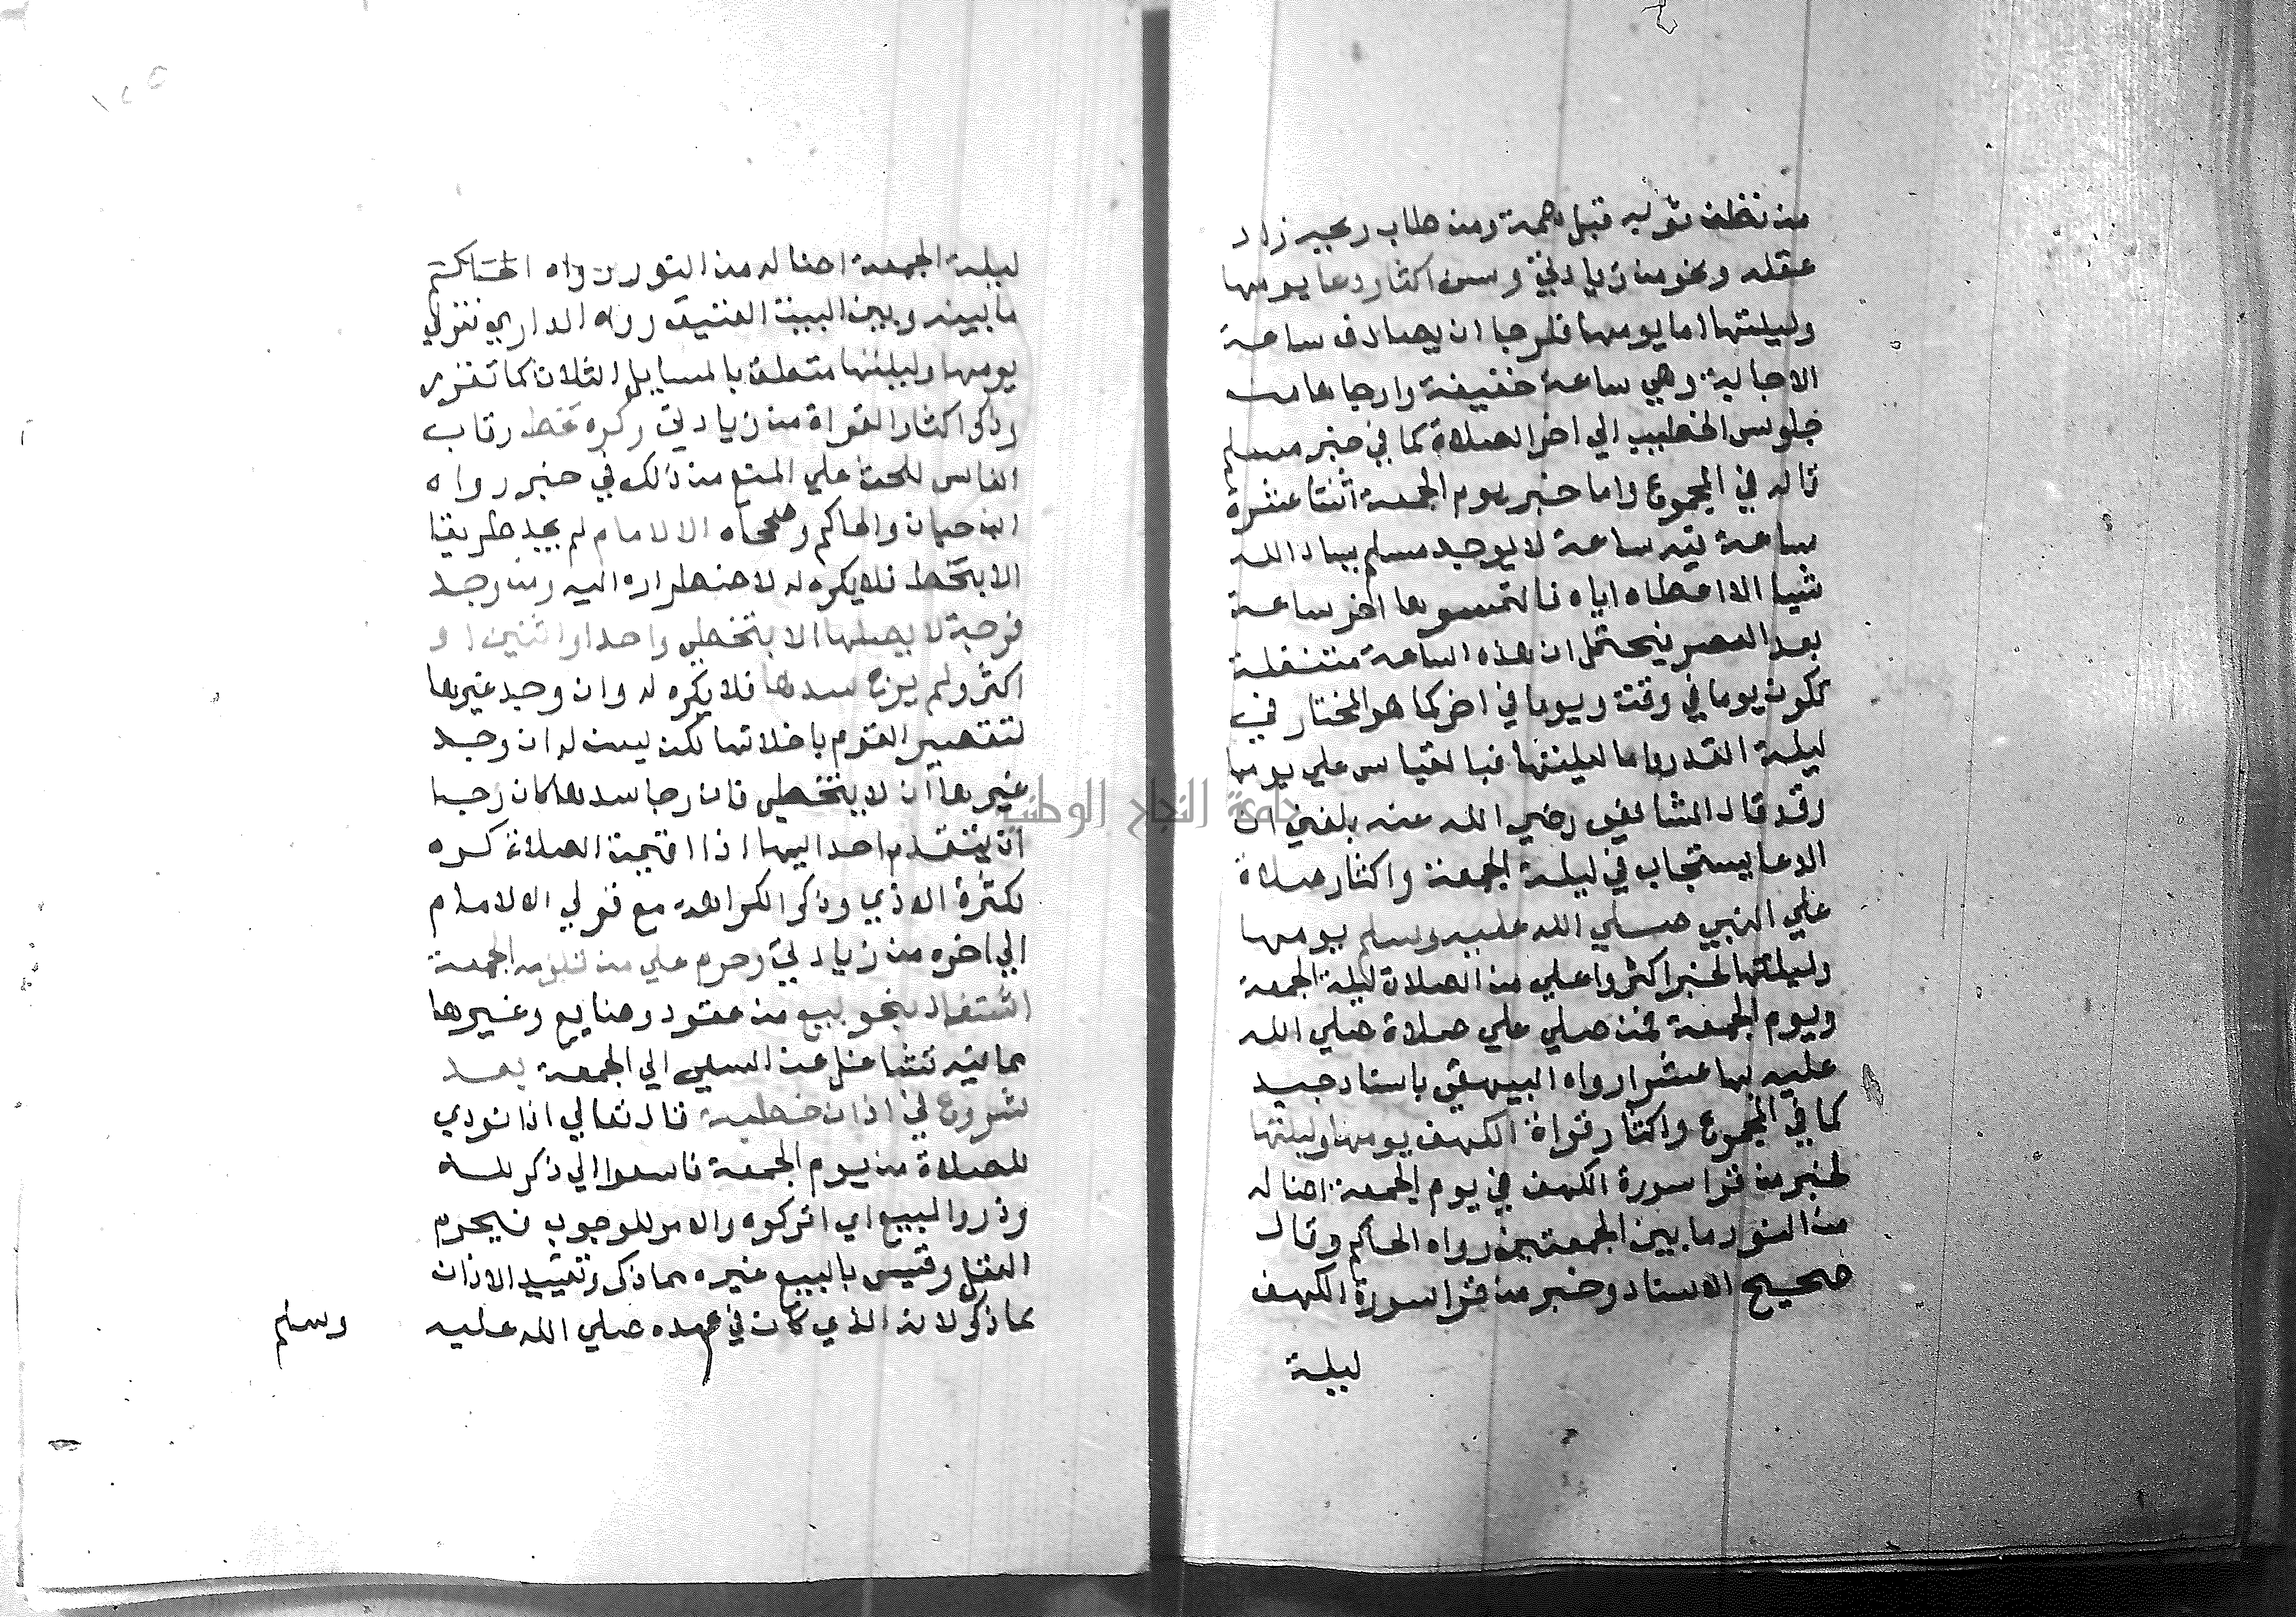 من نظف ثوبه قبل همه ومن طاب ريحه زاد
عقله ونحو من زيادتي وسن اكثار دعا يومها
وليلتها اما يومها فلرجا ان يصادف ساعة
الاجابة وهي ساعة خفيفة وارجاها من
جلوس الخطيب الي اخر الصلاة كما في خبر مسلم
قاله في المجموع واما خبر يوم الجمعة اثنتا عشرة
ساعة فيه ساعة لا يوجد مسلم يسال الله
شيا الا اعطاه اياه فالتمسوها اخر ساعة
بعد العصر فيحتمل ان هذه الساعة متنقلة
تكون يوما في وقت ويوما في اخر كما هو المختار في
ليلة القدر واما ليلتها فبالقياس علي يومها
وقد قال الشافعي رضي الله عنه بلغني ان
الدعا يستجاب في ليلة الجمعة واكثار صلاة
علي النبي صلي الله عليه وسلم يومها
وليلتها لخبر اكثروا علي من الصلاة ليلة الجمعة
ويوم الجمعة فمن صلي علي صلاة صلي الله
عليه بها عشرا رواه البيهقي باسناد جيد
كما في المجموع واكثار قراة الكهف يومها وليلتها
لخبر من قرا سورة الكهف في يوم الجمعة اضا له
من النور ما بين الجمعتين رواه الحاكم وقال
صحيح الاسناد وخبر من قرا سورة الكهف
ليلة
ليلة الجمعة اضا له من النور رواه الحاكم
ما بينه وبين البيت العتيق رواه الدارمي فقولي
يومها وليلتها متعلق بالمسايل الثلاث كما تقرر
وذكر اكثار القراة من زيادتي وكره تخط رقاب
الناس للحث علي المنع من ذلك في خبر رواه
ابن حبان والحاكم وصححاه الا لامام لم يجد طريقا
الا بتخط فلا يكره له لاضطراره اليه ومن وجد
فرجة لا يصلها الا بتخطي واحد او اثنين او
اكثر ولم يرج سدها فلا يكره له وان وجد غيرها
لتقصير القوم باخلائها لكن يسن له ان وجد
غيرها ان لا يتخطي فان رجا سدها كان رجا
ان يتقدم احد اليها اذا اقيمت الصلاة كره
لكثرة الاذي وذكر الكراهة مع قولي الا لامام
الي اخره من زيادتي وحرم علي من تلزمه الجمعة
اشتغال بنحو بيع من عقود وصنايع وغيرها
مما فيه تشاغل عن السعي الي الجمعة بعد
شروع في اذان خطبة قال تعالي اذا نودي
للصلاة من يوم الجمعة فاسعوا الي ذكر الله
وذروا البيع اي اتركوه والامر للوجوب فيحرم
الفعل وقيس بالبيع غيره مما ذكر وتقييد الاذان
بما ذكر لانه الذي كان في عهده صلي الله عليه
وسلم
جامعة النجاح الوطنية